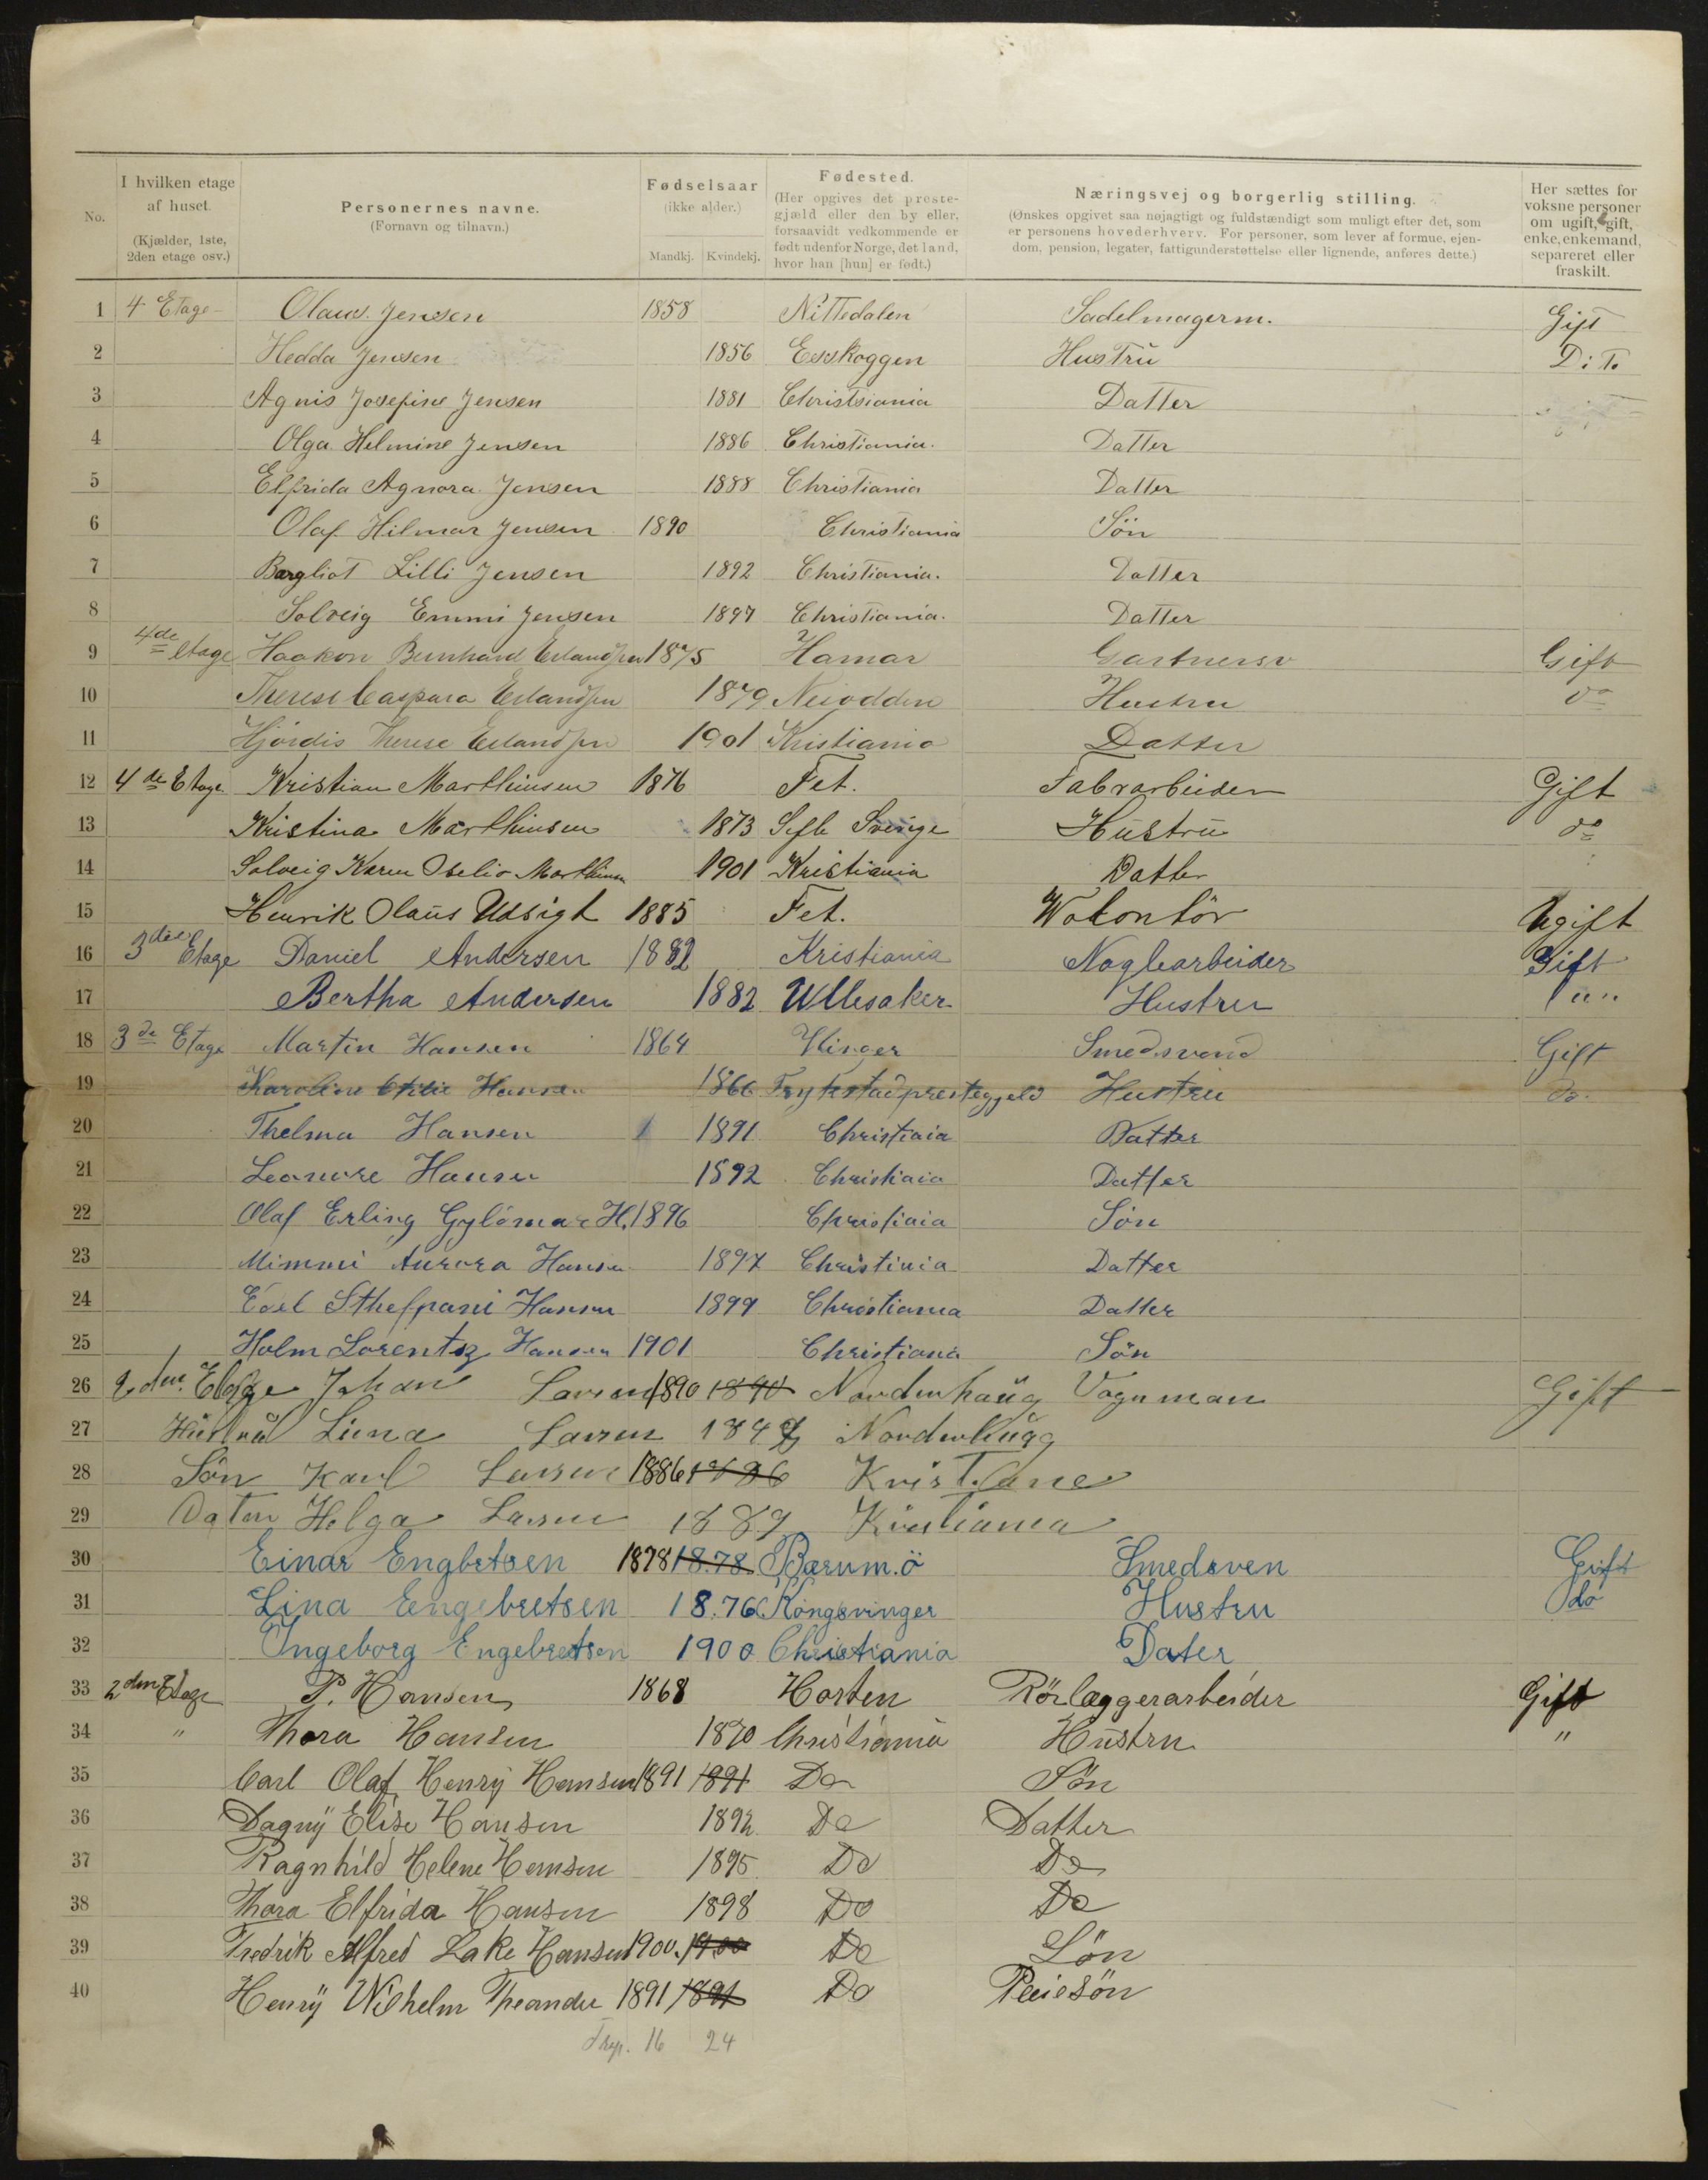 No.
I hvilken etage af huset. (Kjælder, 1ste, 2den etage osv.)
Personernes navne. (Fornavn og tilnavn.)
Fødselsaar (ikke alder.) Mandkj. Kvindekj.
Fødested. (Her opgives det prestegjæld eller den by eller, forsaavidt vedkommende er født udenfor Norge, det land, hvor han [hun] er født.)
Næringsvej og borgerlig stilling. (Ønskes opgivet saa nøjagtigt og fuldstændigt som muligt efter det, som er personens hovederhverv. For personer, som lever af formue, ejendom, pension, legater, fattigunderstøttelse eller lignende, anføres dette.)
Her sættes for voksne personer om ugift, gift, enke, enkemand, separeret eller fraskilt.
1 4 Etage Olaus. Jensen 1858 Nittedalen Sadelmagerm. Gift
2 Hedda Jensen 1856 Esskoggen Hustru D: To
3 Agnis Josefine Jensen 1881 Christsiania Datter
4 Olga Helmine Jensen 1886 Christiania. Datter
5 Elfrida Agnora Jensen 1888 Christiania Datter
6 Olaf Hilmar Jensen 1890 Christiania Sön
7 Borgliot Lilli Jensen 1892 Christiania. Datter
8 Solveig Emmi Jensen 1897 Christiania. Datter
9 4de etage Haakon Bernhard Erlandsen 1875 Hamar Gartnersv Gift
10 Therese Caspara Erlandsen 1879 Nesodden Hustru do
11 Hjördis Therese Erlandsen 1901 Kristiania Datter
12 4de Etage Kristian Marthinsen 1876 Fet. Fabrarbeider Gift
13 Kristina Marthinsen 1873 Sefle Sverige Hustru do
14 Solveig Karen Marthinsen 1901 Kristiania Datter
15 Henrik Olaus Udsigt 1885 Fet. Wolontör Ugift
16 3die Etage Daniel Andersen 1882 Kristiania Naglearbeider Gift
17 Bertha Andersen 1882 Ullesaker Hustru "
18 3de Etage Martin Hansen 1864 Vinger Smedsvend Gift
19 Karoline Otilie Hansen 1866 Trykstad prestegjeld Hustru do.
20 Thelma Hansen 1891 Christiaia Datter
21 Leonore Hansen 1892 Christiaia Datter
22 Olaf Erling Gylómar H. 1896 Christiaia Sön
23 Mimmi Aurora Hansen 1897 Christinia Datter
24 Edel Sthefpani Hansen 1899 Christiania Datter
25 Holm Lorentsz Hansen 1901 Christiana Sön
26 2den Etage Johan Larsen 1890 1890 Norderhaug Vognman Gift
27 Hustru Larsen Norderhaug
28 Sön Karl Larsen 1886 1886 Kristiane
29 Dater Helga Larsen 1889 Kristiania
30 Einar Engbretsen 1878 18.78. Bærum.ö Smedsven Gift
31 Lina Engebretsen 18.76 Kongsvinger Hustru do
32 Ingeborg Engebretsen 1900 Christiania Dater
33 2den Etage P. Hansen 1868 Horten Rörlæggerarbeider Gift
34 " Thora Hansen 1870 Christiania Hustru "
35 Carl Olaf Henry Hansen 1891 1891 Do Sön
36 Dagny Elise Hansen 1892 Do Datter
37 Ragnhild Helene Hansen 1895 Do Do
38 Thora Elfrida Hansen 1898 Do Do
39 Fredrik Alfred Lake Hansen 1900. 1900 Do Sön
40 Henry Wilhelm Theander 1891 1891 Do Pleiesön
16 24